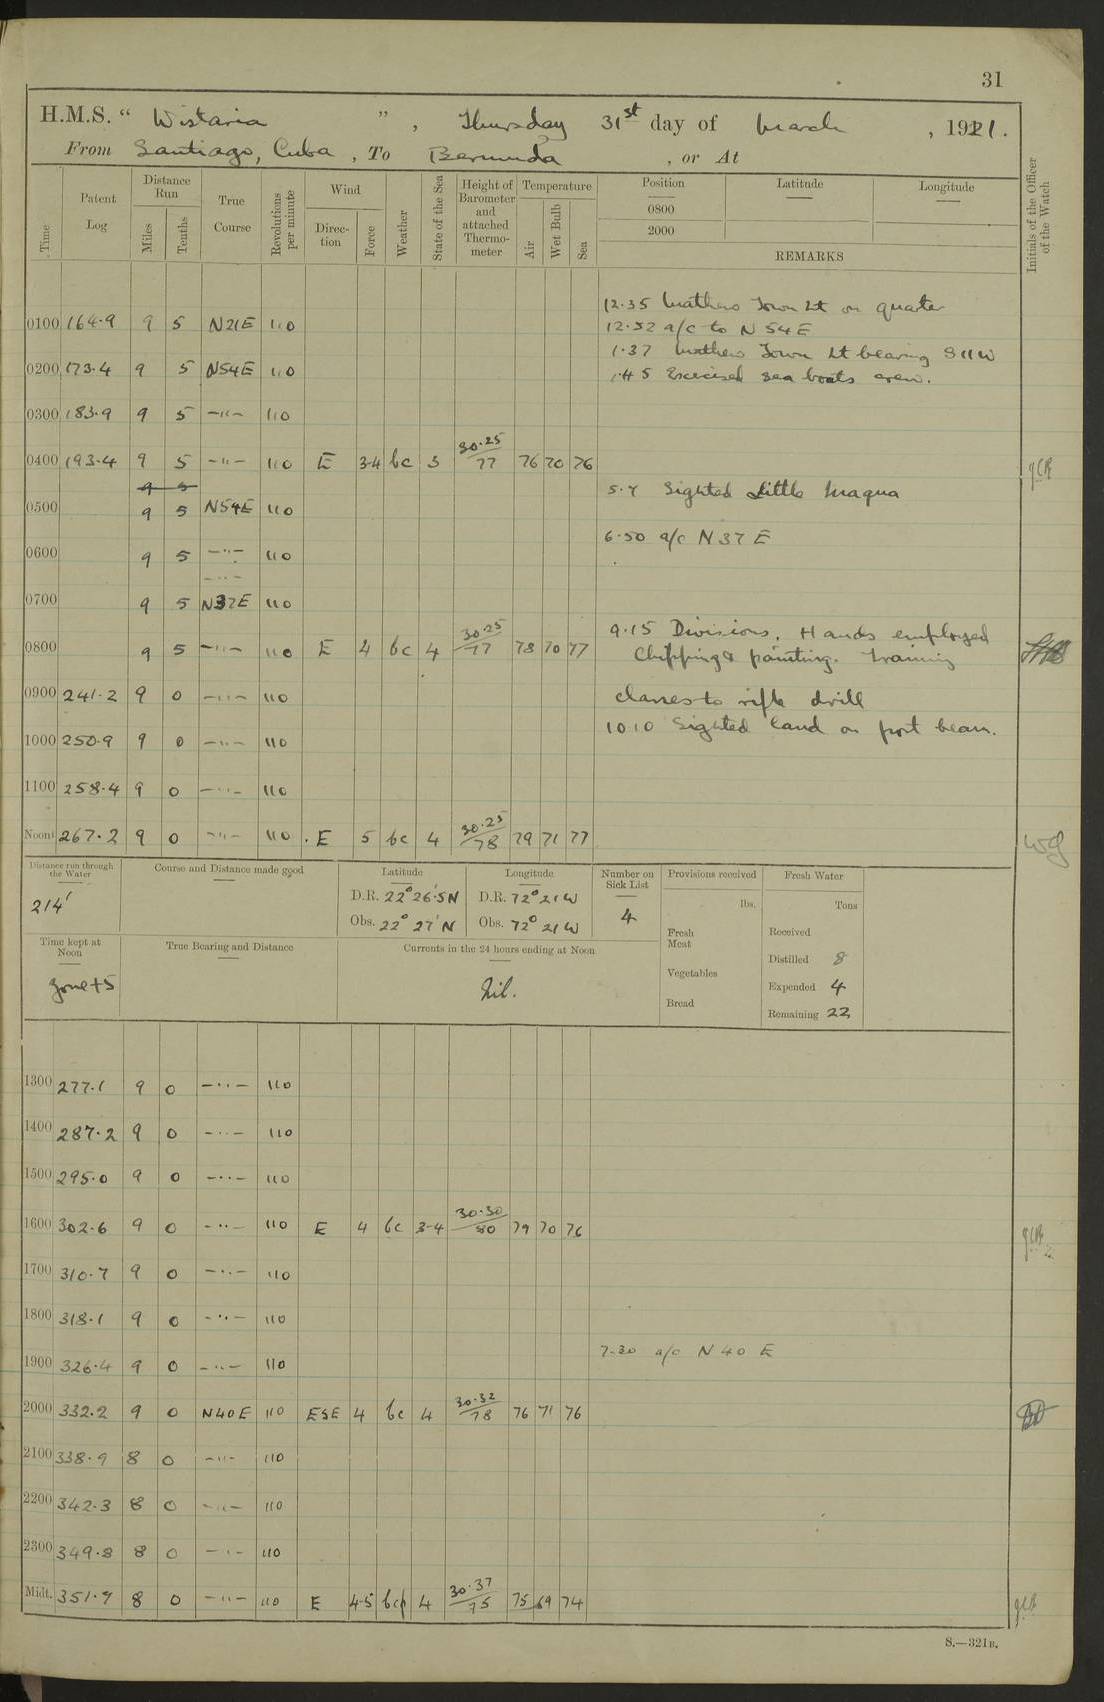 31
H.M.S. “ Wistaria ”, Thursday 31st day of March, 1921.
From Santiago, Cuba, To Bermuda, or At
Time
Patent Log
Distance Run
Miles
Tenths
True Course
Revolutions per minute
Wind
Direc-tion
Force
Weather
State of the Sea
Height of Barometer and attached Thermo-meter
Temperature
Air
Wet Bulb
Sea
Position Latitude Longitude
0800
2000
REMARKS
Initials of the Officer of the Watch
12.35 Mathew Town Lt on quarter
0100 164.9 9 5 N21E 110 12.52 a/c to N 54 E
1.37 Mathew Town Lt bearing S11W
0200 173.4 9 5 N54E 110 1.45 Exercised sea boats crew.
0300 183.9 9 5 —"— 110
0400 193.4 9 5 —"— 110 E 3-4 bc 3 30.25/77 76 70 76
9 5
0500 9 5 N54E 110 Sighted Little Inagua
0600 9 5 —"— 110 6.50 a/c N 37 E
—"—
0700 9 5 N37E 110
0800 9 5 —"— 110 E 4 bc 4 30.25/77 78 70 77 9.15 Divisions. Hands employed
Chipping & painting. Training
0900 241.2 9 0 —"— 110 classes to rifle drill
1000 250.9 9 0 —"— 110 1010 Sighted land on port beam.
1100 258.4 9 0 —"— 110
Noon 267.2 9 0 —"— 110 E 5 bc 4 30.25/78 79 71 77
Distance run through the Water
214'
Course and Distance made good
Latitude
D.R. 22° 26'.5 N
Obs. 22° 27' N
Longitude
D.R. 72° 21 W
Obs. 72° 21 W
Number on Sick List
4
Provisions received
lbs.
Fresh Meat
Vegetables
Bread
Fresh Water
Tons
Received
Distilled 8
Expended 4
Remaining 22
Time kept at Noon
Zone +5
True Bearing and Distance
Currents in the 24 hours ending at Noon
Nil.
1300 277.1 9 0 —"— 110
1400 287.2 9 0 —"— 110
1500 295.0 9 0 —"— 110
1600 302.6 9 0 —"— 110 E 4 bc 3-4 30.30/80 79 70 76
1700 310.7 9 0 —"— 110
1800 318.1 9 0 —"— 110
1900 326.4 9 0 —"— 110 7.30 a/c N 40 E
2000 332.2 9 0 N40E 110 ESE 4 bc 4 30.32/78 76 71 76
2100 338.9 8 0 —"— 110
2200 342.3 8 0 —"— 110
2300 349.8 8 0 —"— 110
Midt. 351.9 8 0 —"— 110 E 4-5 bcp 4 30.37/75 75 69 74
S.—321B.